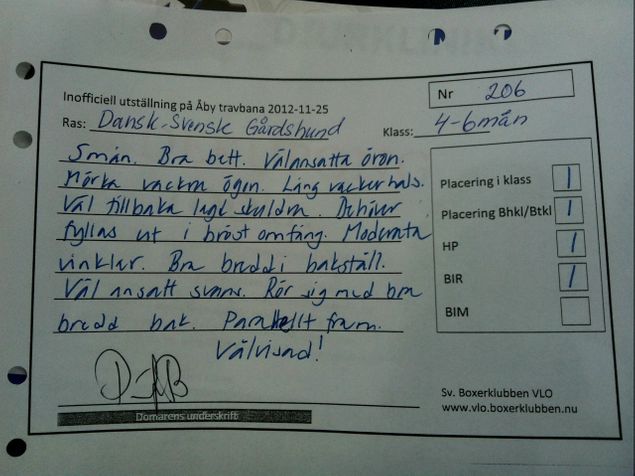 Inofficiell utställning på Åby travbana 2012-11-25
Nr 206
Ras: Dansk-Svensk Gårdshund
Klass: 4-6 mån
5 mån. Bra bett. Välansatta öron.
Mörka vackra ögon. Lång vacker hals.
Väl tillbaka lagt skuldra. Behöver
fyllas ut i bröst omfång. Moderata
vinklar. Bra bredd i bakställ.
Väl ansatt svans. Rör sig med bra
bredd bak. Parallellt fram.
Välvisad!
Placering i klass 1
Placering Bhkl/Btkl 1
HP 1
BIR 1
BIM
Domarens underskrift
Sv. Boxerklubben VLO
www.vlo.boxerklubben.nu